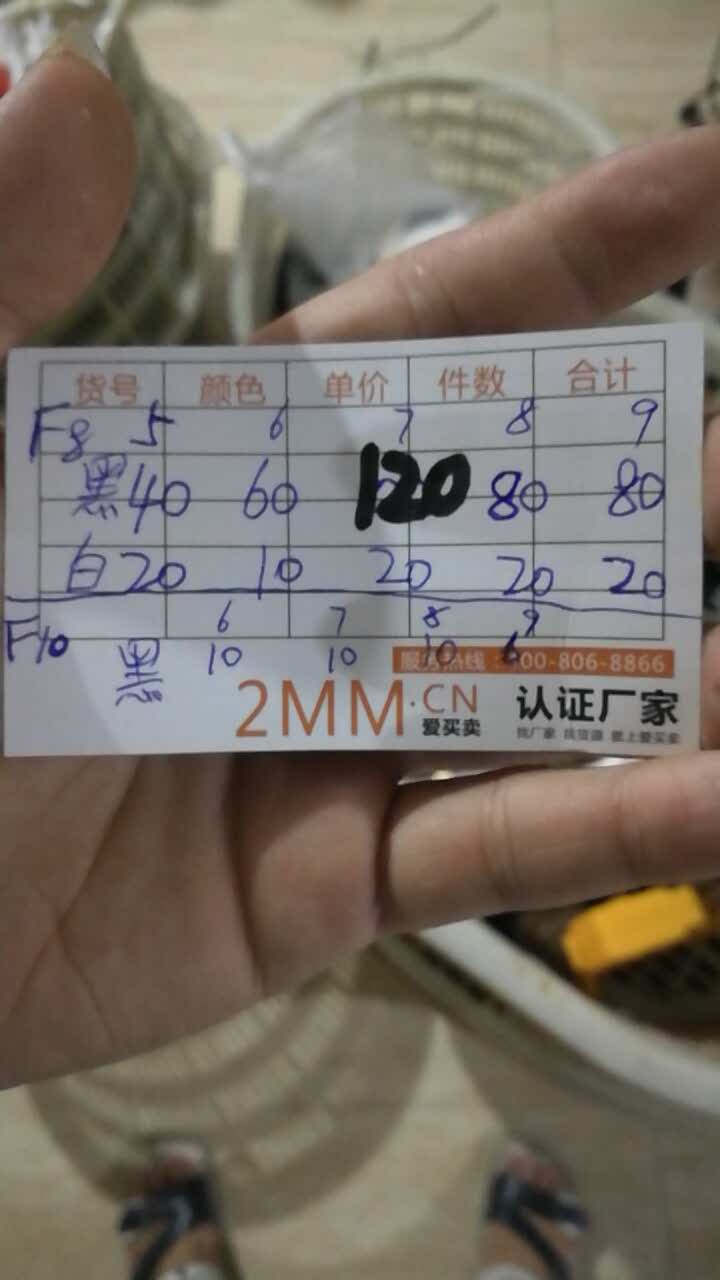 货号 颜色 单价 件数 合计
F8 5 6 7 8 9
黑 40 60 120 80 80
白 20 10 20 20 20
F10 6 7 8 9
黑 10 10 10 6
服务热线 00-806-8866
2MM.CN 爱买卖 认证厂家
找厂家 找货源 就上爱买卖